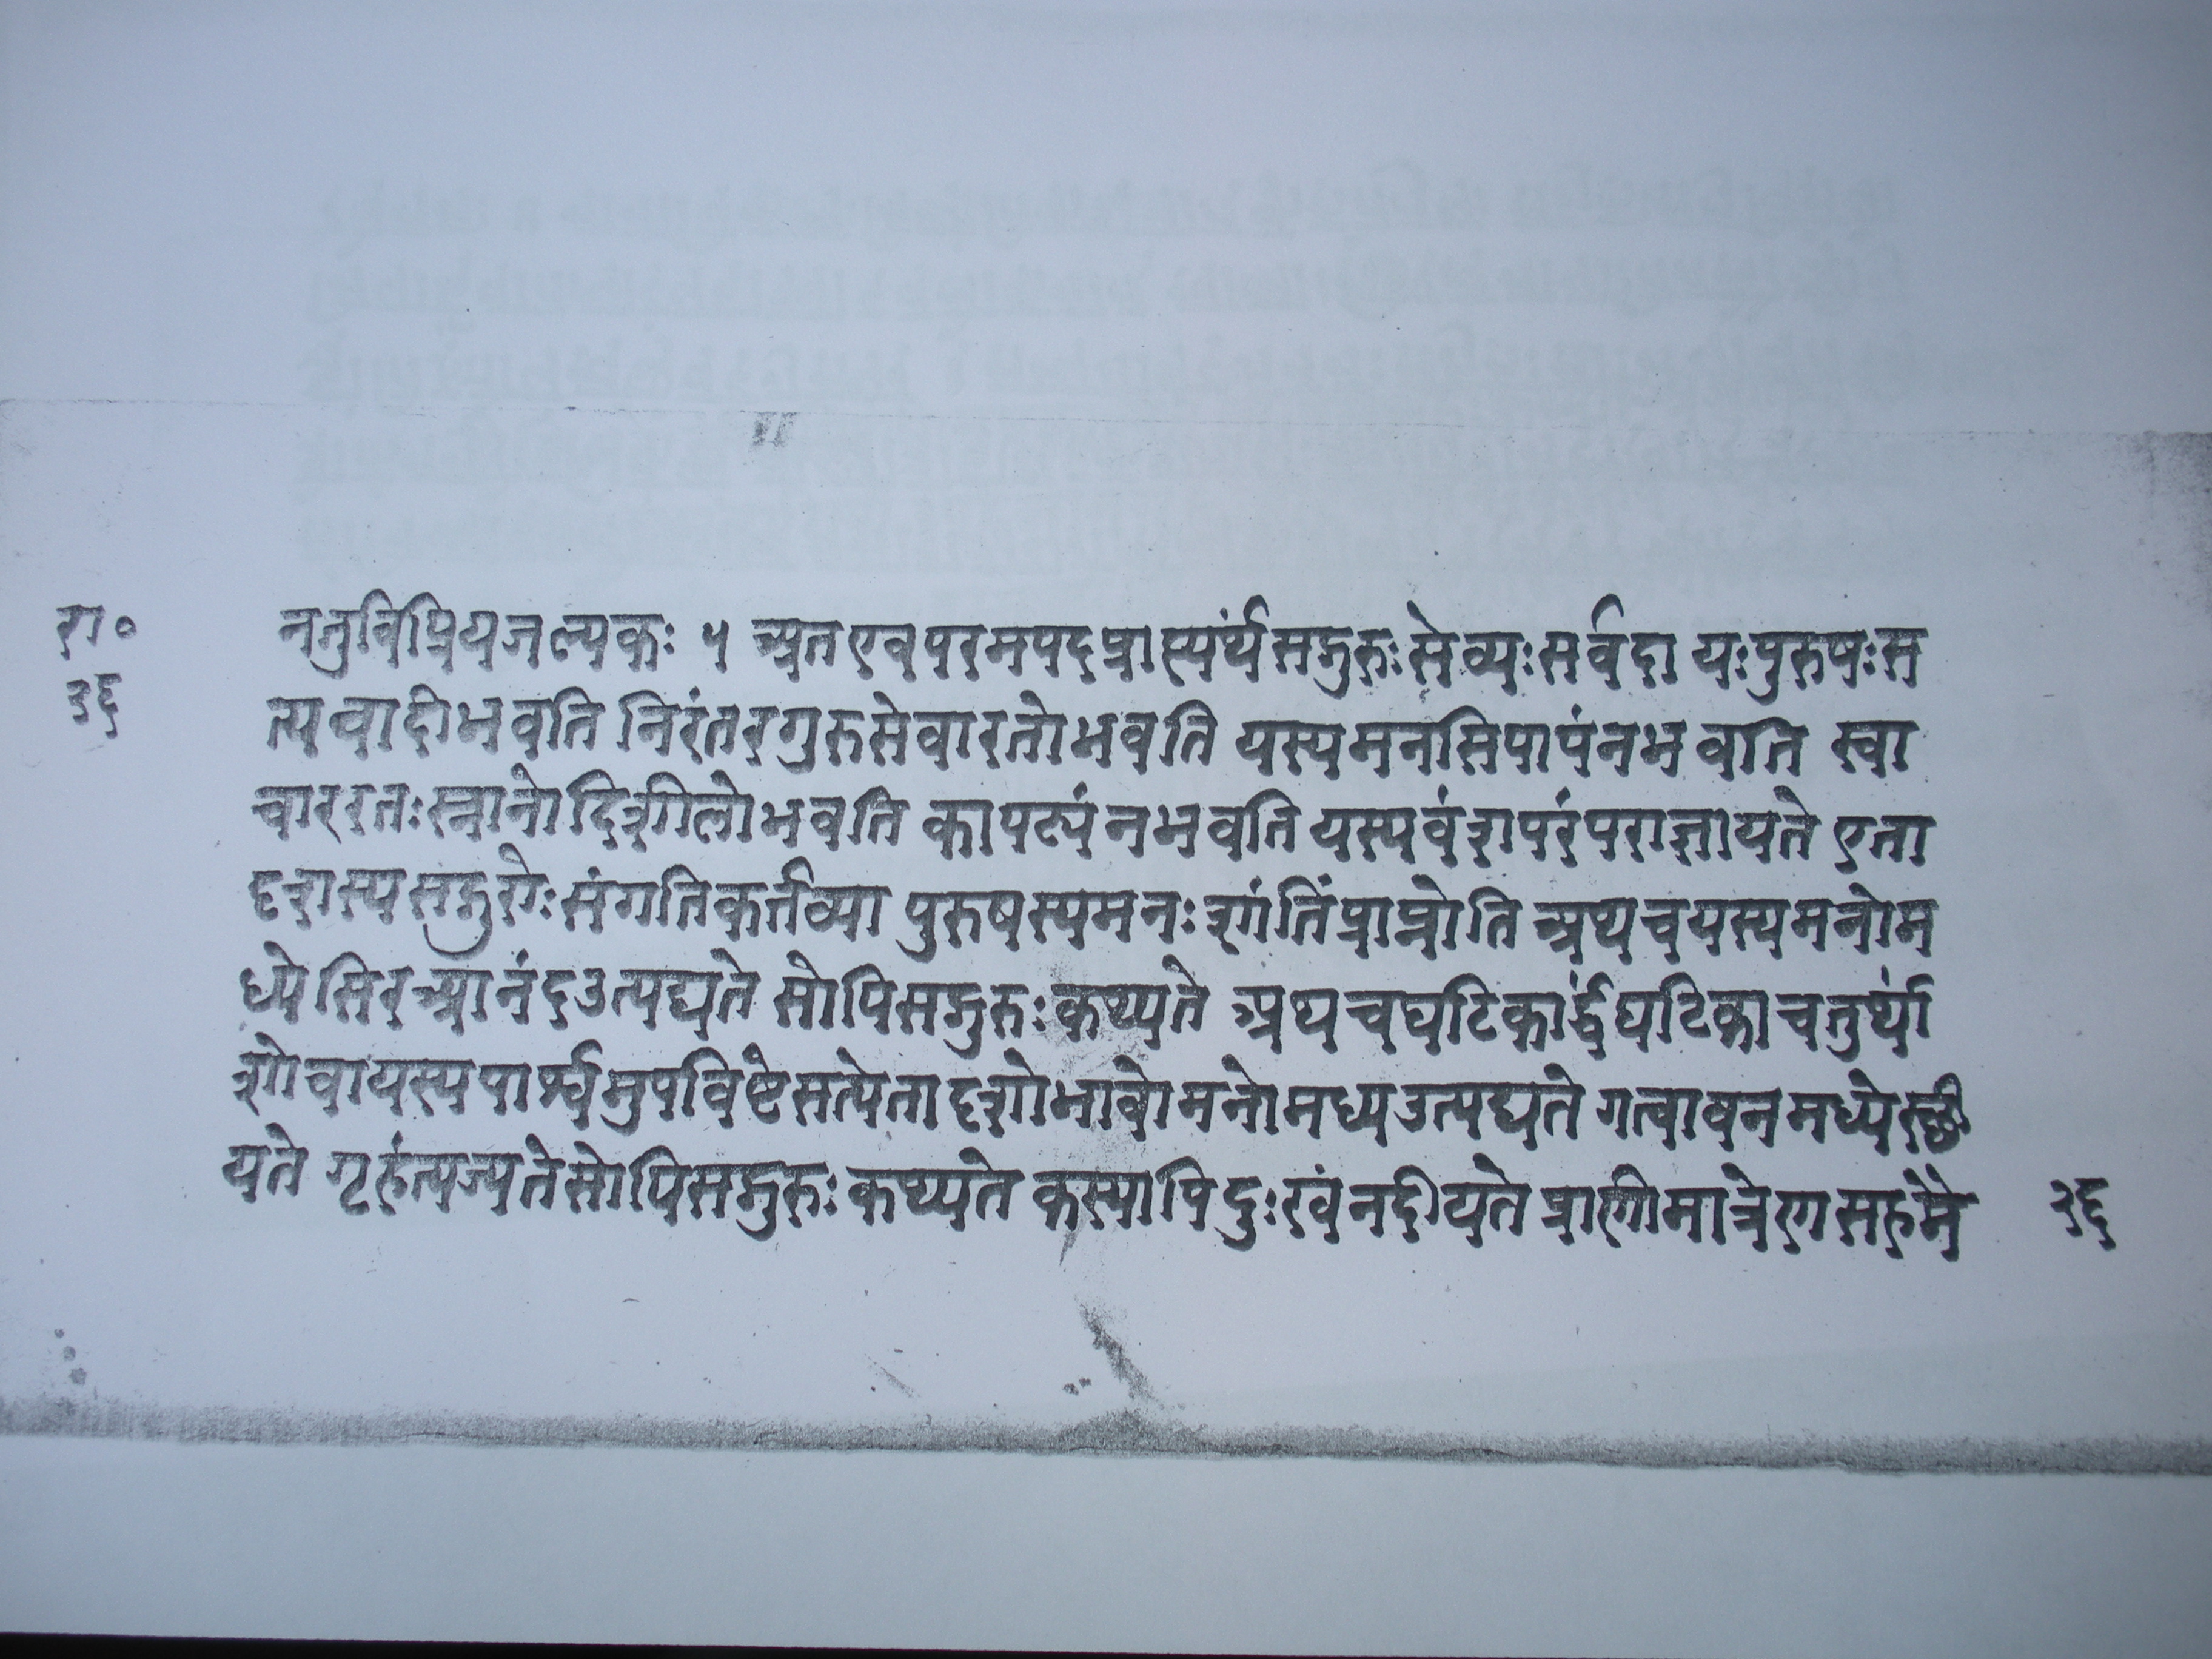 रा०
३६
ननुविप्रियजल्पकः ५ अतएवपरमपदप्राप्त्यंर्थसद्गुरुःसेव्यःसर्वदा यःपुरुषःस
त्यवादीभवति निरंतरगुरुसेवारतोभवति यस्यमनसिपापंनभवति स्वा
चाररतःस्नानोदिशीलोभवति कापट्यंनभवति यस्यवंशपरंपराज्ञायते एता
दृशस्यसद्गुरोःसंगतिकर्त्तव्या पुरुषस्यमनःशांतिंप्राप्नोति अथचयस्यमनोम
ध्येसिरआनंदउत्पद्यते सोपिसद्गुरुःकथ्यते अथचघटिकार्द्धंघटिकाचतुर्थां
शोवायस्यपार्श्वमुपविष्टेसत्येतादृशोभावोमनोमध्यउत्पद्यते गत्वावनमध्येस्थी
यते गृहंत्यज्यतेसोपिसद्गुरुःकथ्यते कस्यापिदुःखंनदीयते प्राणीमात्रेणसहमै
३६